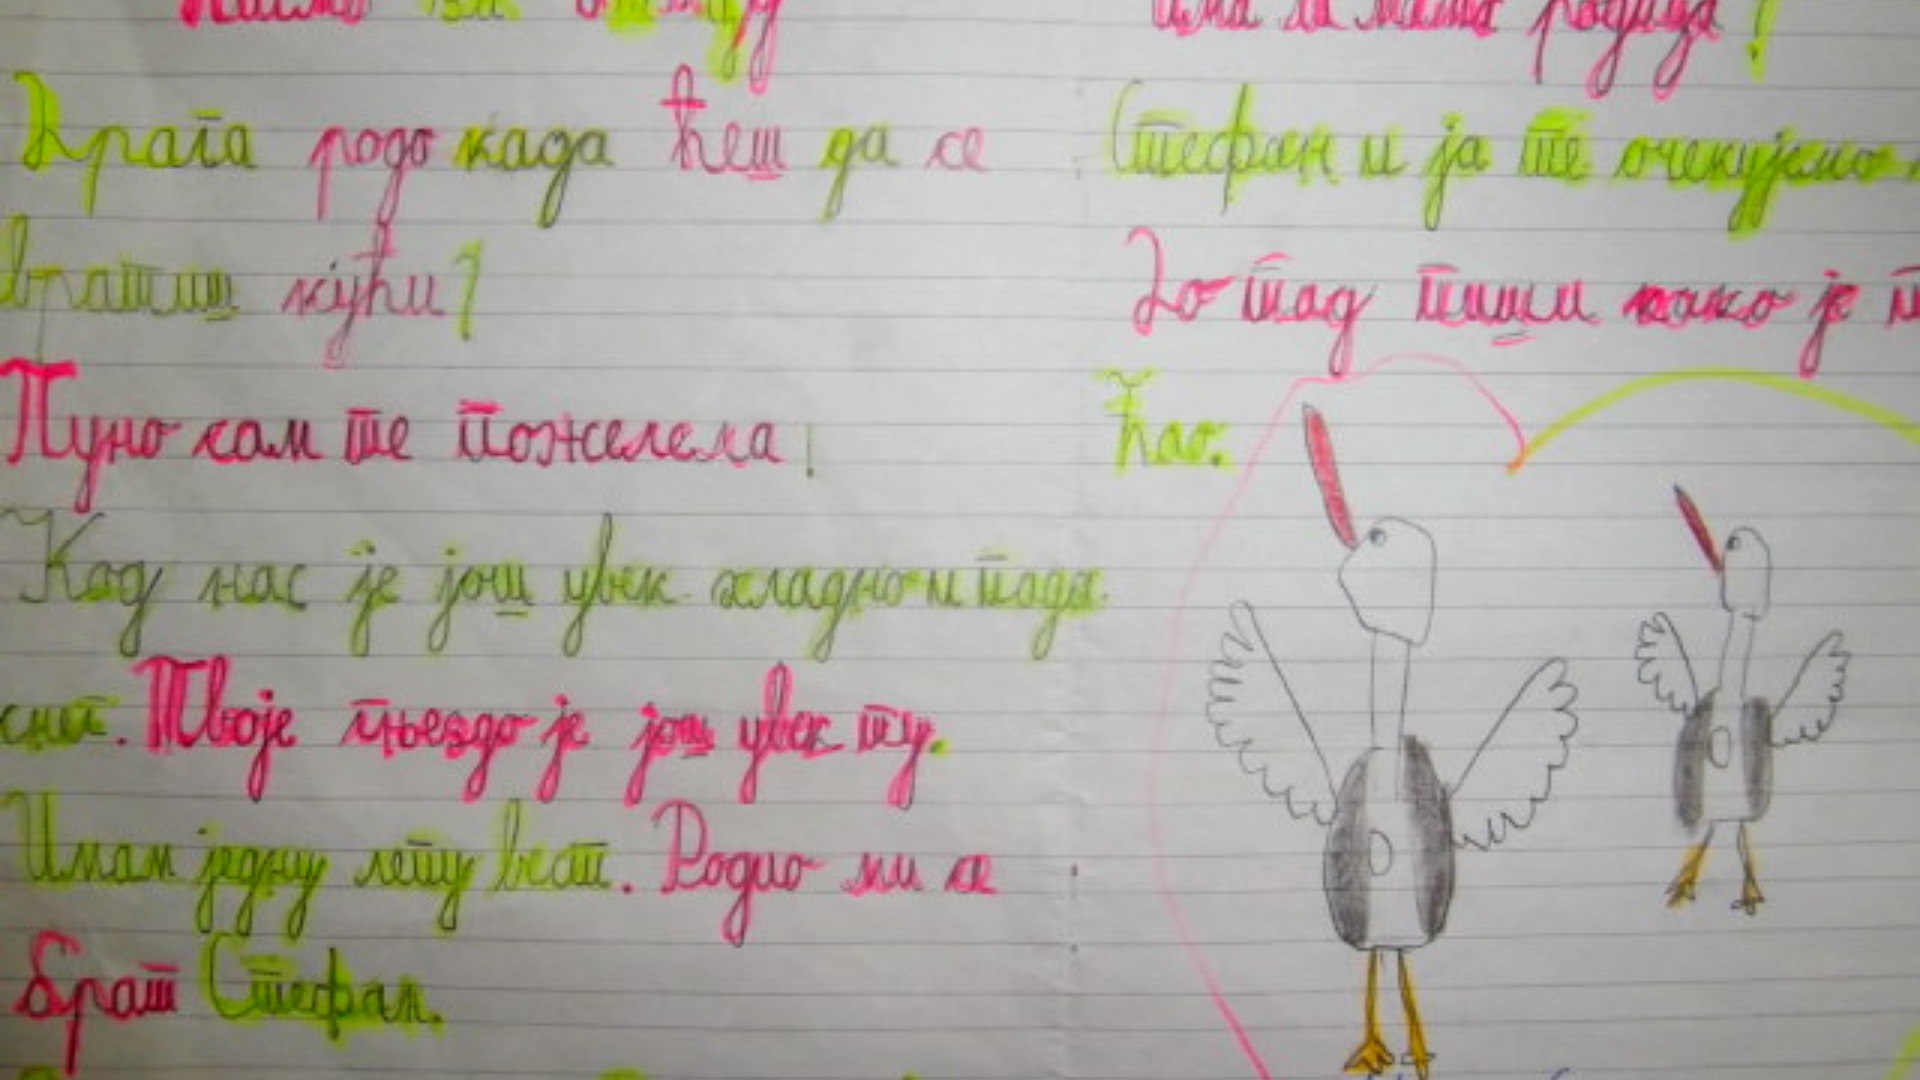 Драга родо када ћеш да се
вратиш кући?
Пуно сам те пожелела!
Код нас је још увек хладно и пада
снег. Твоје гнездо је још увек ту.
Имам једну лепу вест. Родио ми се
брат Стефан.
има ли мата родица?
Стефан и ја те очекујемо
До тад пиши како је
Ћао.